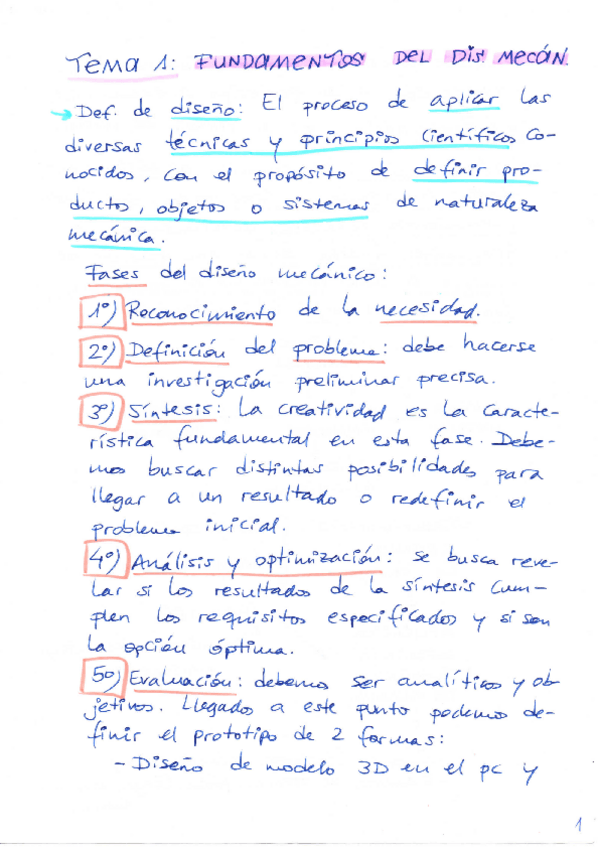 Tema 1: FUNDAMENTOS DEL DIS. MECÁN.
Def. de diseño: El proceso de aplicar las
diversas técnicas y principios científicos co-
nocidos, con el propósito de definir pro-
ductos, objetos o sistemas de naturaleza
mecánica.
Fases del diseño mecánico:
1º) Reconocimiento de la necesidad.
2º) Definición del problema: debe hacerse
una investigación preliminar precisa.
3º) Síntesis: La creatividad es la caracte-
rística fundamental en esta fase. Debe-
mos buscar distintas posibilidades para
llegar a un resultado o redefinir el
problema inicial.
4º) Análisis y optimización: se busca reve-
lar si los resultados de la síntesis cum-
plen los requisitos especificados y si son
la opción óptima.
5º) Evaluación: debemos ser analíticos y ob-
jetivos. Llegado a este punto podemos de-
finir el prototipo de 2 formas:
- Diseño de modelo 3D en el pc y
1